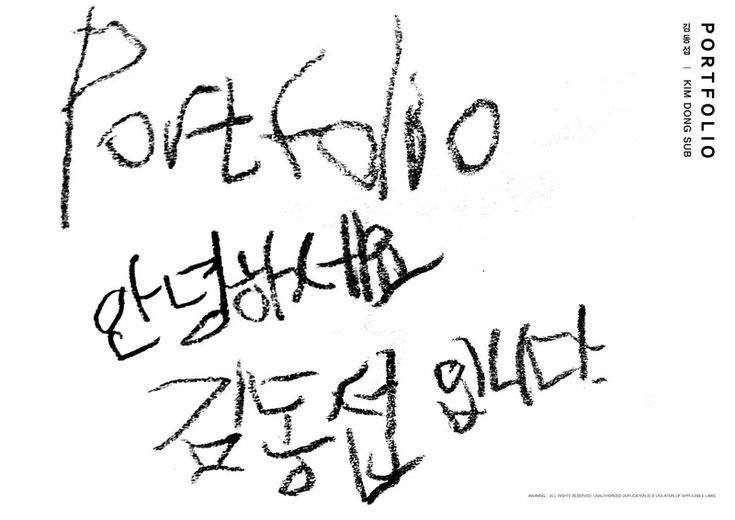 Portfolio
안녕하세요
김동섭 입니다.
PORTFOLIO
김동섭 | KIM DONG SUB
WARNING : ALL RIGHTS RESERVED, UNAUTHORIZED DUPLICATION IS A VIOLATION OF APPLICABLE LAWS.